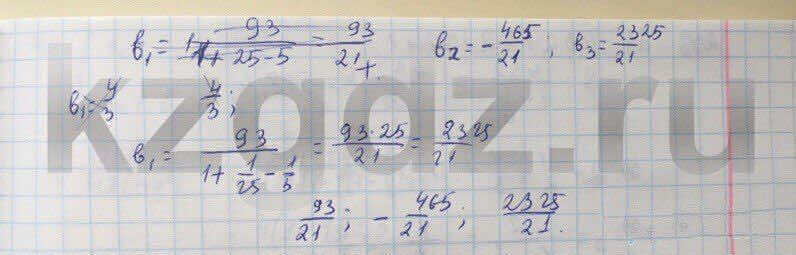 b₁ = 93/(1+25-5) = 93/21 b₂ = -465/21; b₃ = 2325/21
b₁ = 4/3 4/3;
b₁ = 93/(1+1/25-1/5) = 93·25/21 = 2325/21
93/21; -465/21; 2325/21.
kzgdz.ru